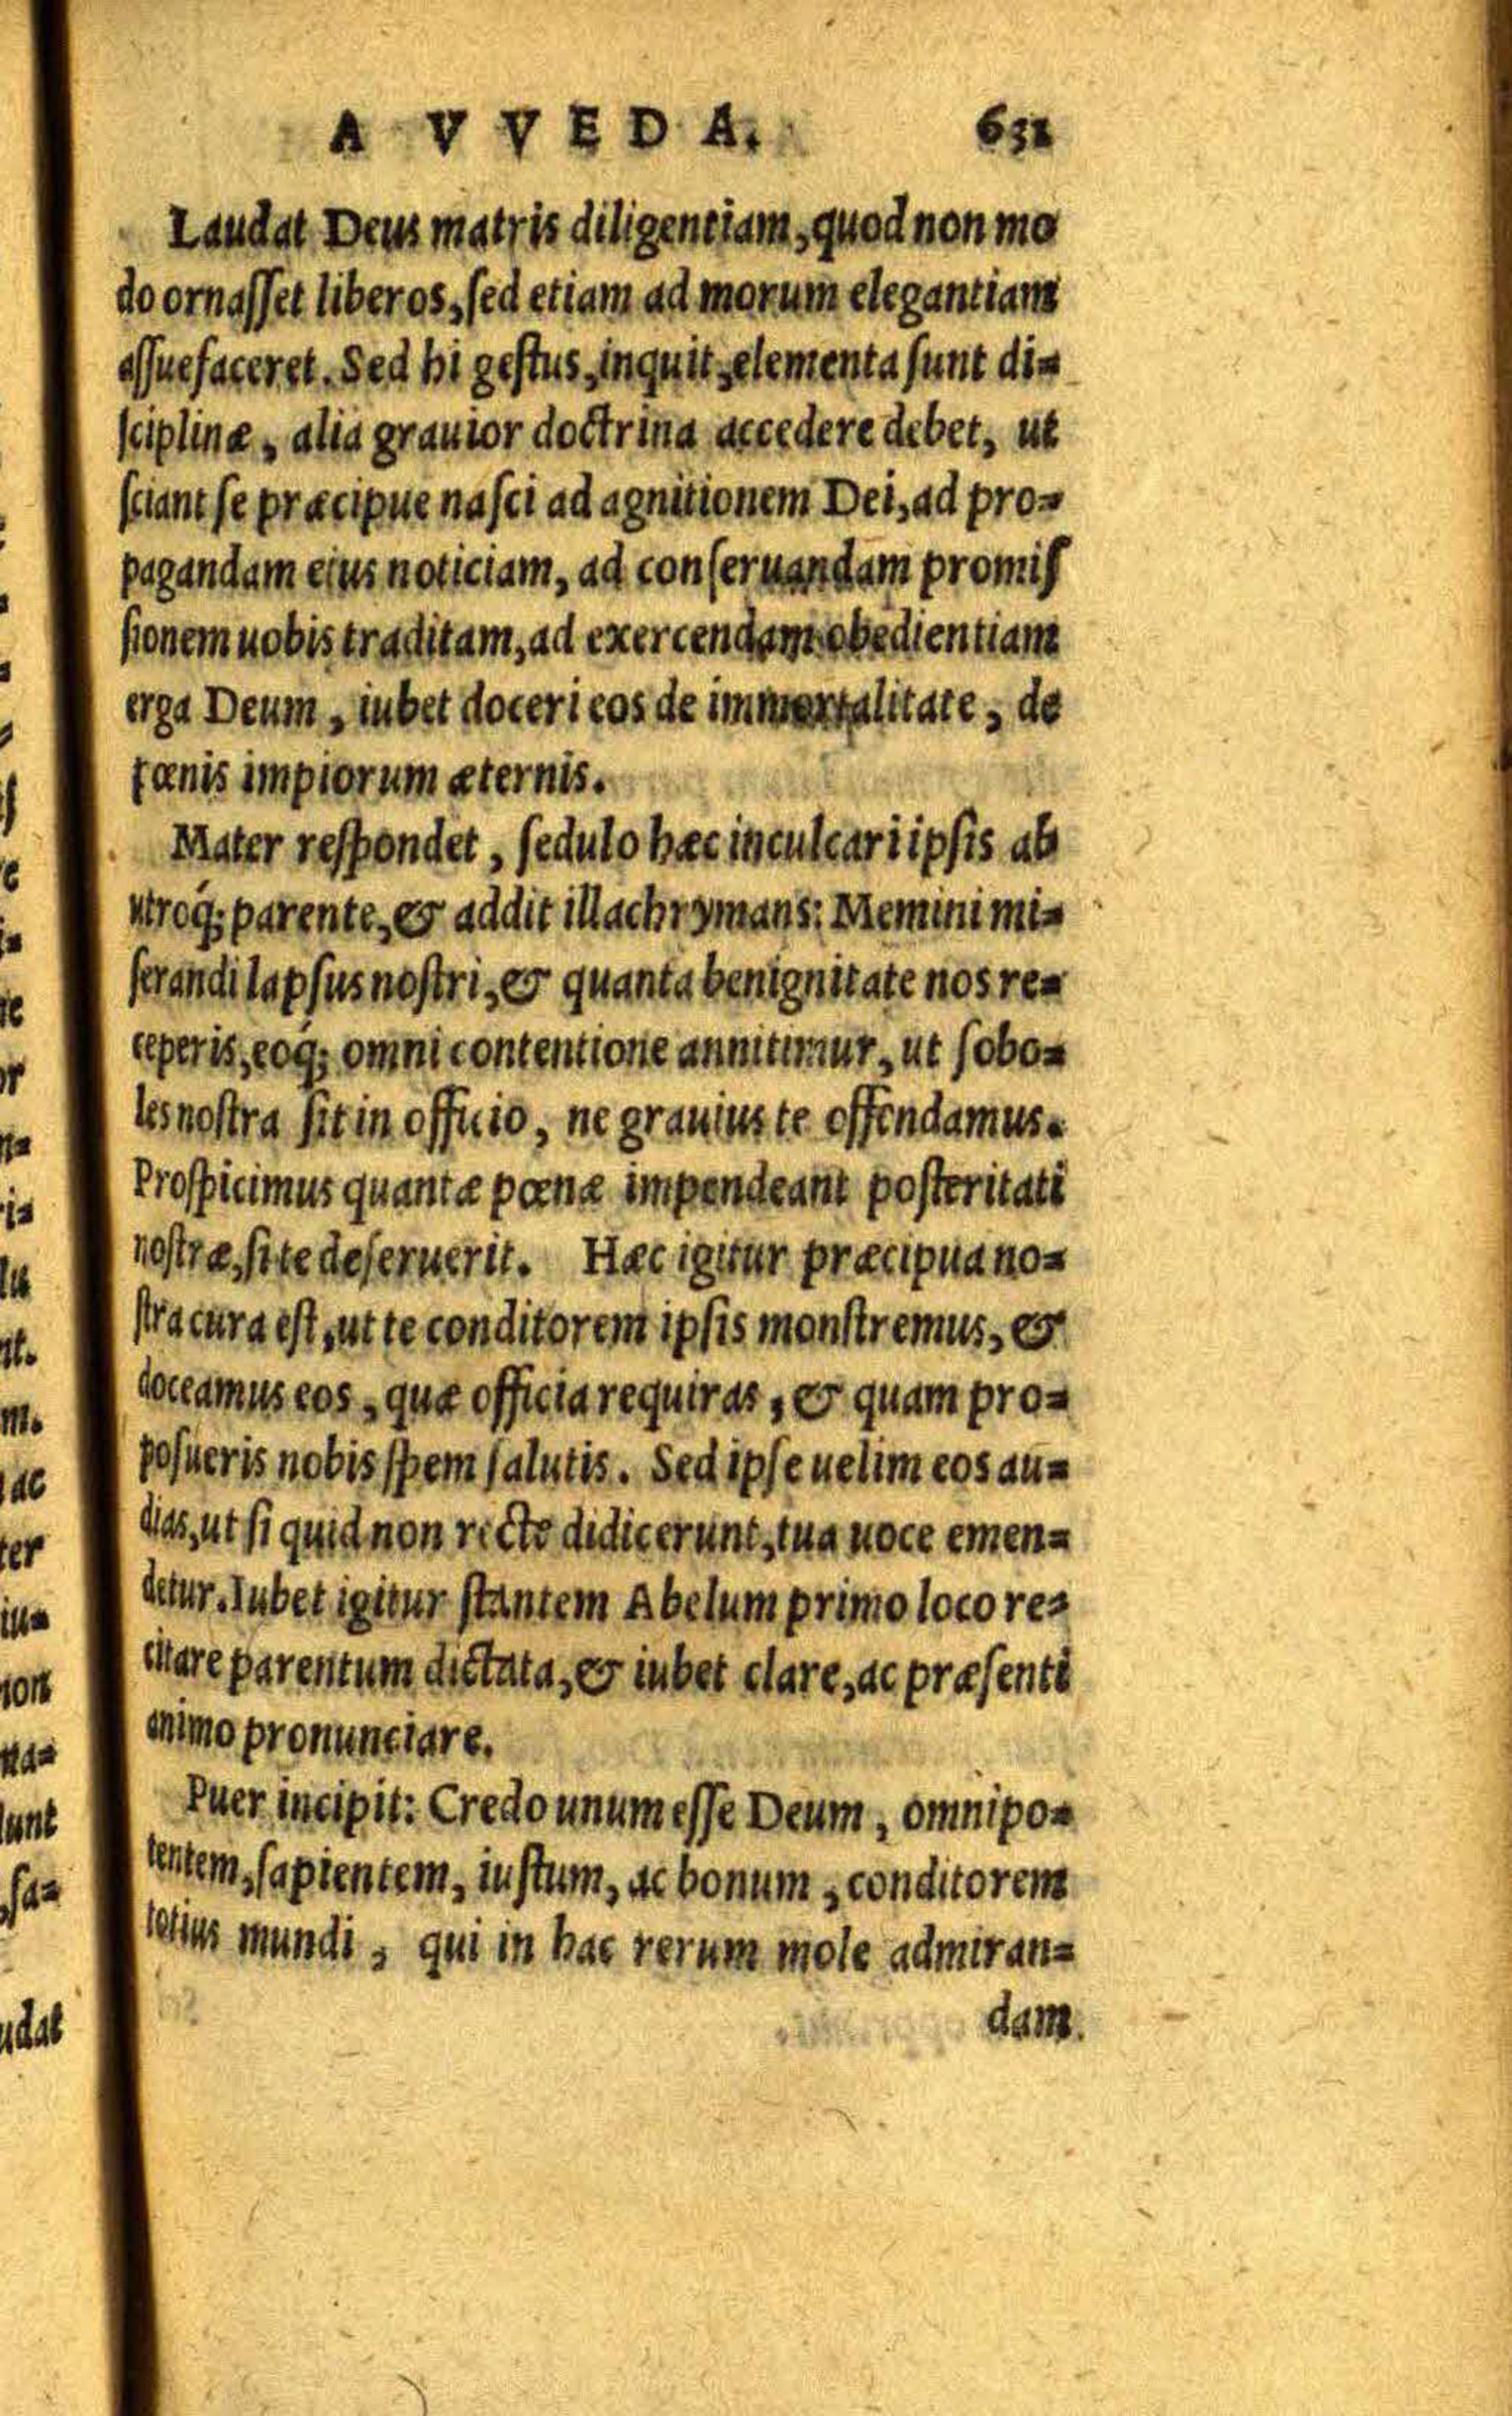 A VVEDA. 631
Laudat Deus matris diligentiam, quod non mo
do ornasset liberos, sed etiam ad morum elegantiam
assuefaceret. Sed hi gestus, inquit, elementa sunt di-
sciplinæ, alia grauior doctrina accedere debet, ut
sciant se præcipue nasci ad agnitionem Dei, ad pro-
pagandam eius noticiam, ad conseruandam promis
sionem uobis traditam, ad exercendam obedientiam
erga Deum, iubet doceri eos de immortalitate, de
pœnis impiorum æternis.
Mater respondet, sedulo hæc inculcari ipsis ab
utroq́; parente, & addit illachrymans: Memini mi-
serandi lapsus nostri, & quanta benignitate nos re-
ceperis, eoq́; omni contentione annitimur, ut sobo-
les nostra sit in officio, ne grauius te offendamus.
Prospicimus quantæ pœnæ impendeant posteritati
nostræ, si te deseruerit. Hæc igitur præcipua no-
stra cura est, ut te conditorem ipsis monstremus, &
doceamus eos, quæ officia requiras, & quam pro-
posueris nobis spem salutis. Sed ipse uelim eos au-
dias, ut si quid non recte didicerunt, tua uoce emen-
detur. Iubet igitur stantem Abelum primo loco re-
citare parentum dictata, & iubet clare, ac præsenti
animo pronunciare.
Puer incipit: Credo unum esse Deum, omnipo-
tentem, sapientem, iustum, ac bonum, conditorem
totius mundi, qui in hac rerum mole admiran-
dam